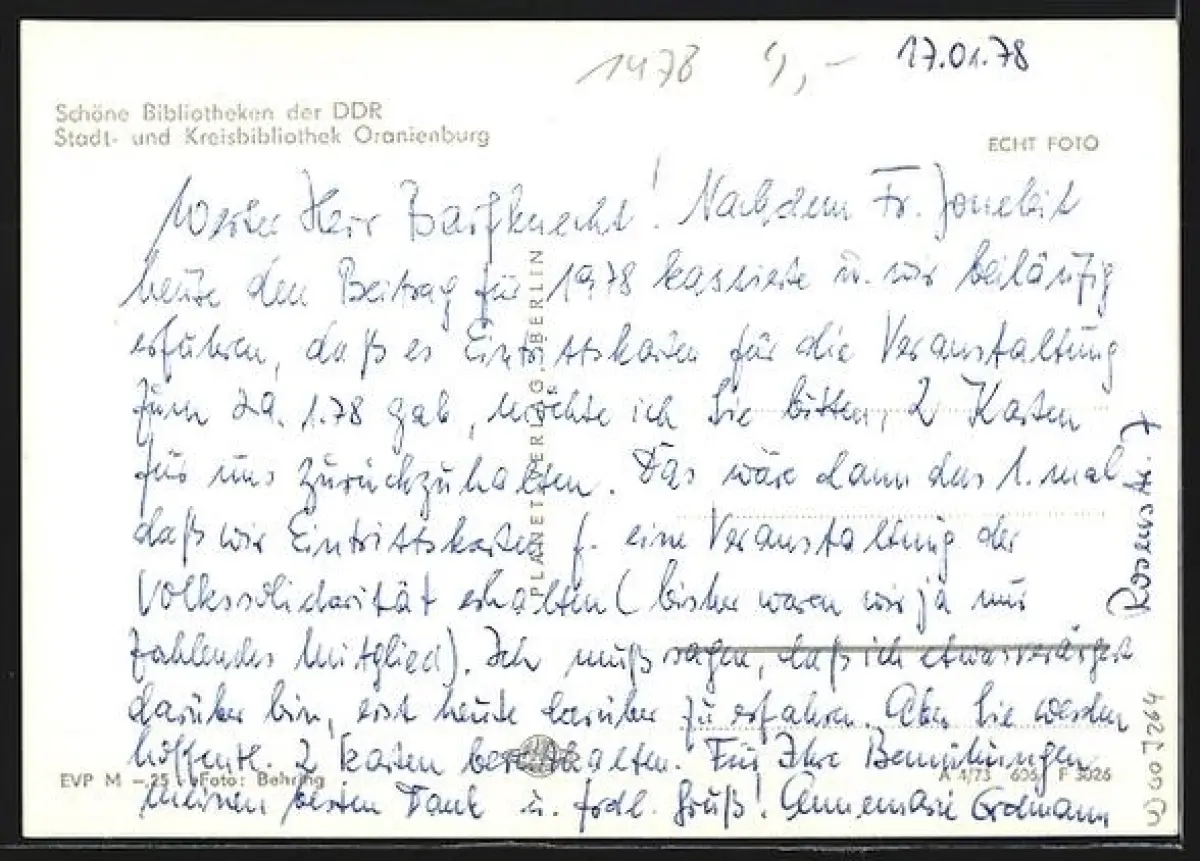 1978 9,- 17.01.78
Schöne Bibliotheken der DDR
Stadt- und Kreisbibliothek Oranienburg
ECHT FOTO
Werter Herr Barfknecht! Nachdem Fr. Joneleit
heute den Beitrag für 1978 kassierte u. wir beiläufig
erfuhren, daß es Eintrittskarten für die Veranstaltung
zum 29. 1.78 gab, möchte ich Sie bitten, 2 Karten
für uns zurückzuhalten. Das wäre dann das 1. mal
daß wir Eintrittskarten f. eine Veranstaltung der
Volkssolidarität erhalten (bisher waren wir ja nur
zahlendes Mitglied). Ich muß sagen, daß ich etwas verärgert
darüber bin, erst heute darüber zu erfahren. Aber Sie werden
hoffentl. 2 Karten bereithalten. Für Ihre Bemühungen
meinen besten Dank u. frdl. Gruß! Annemarie Erdmann
Rosenstr. 7
PLANET-VERLAG BERLIN
EVP M -,25 Foto: Behring
A 4/73 F 3026